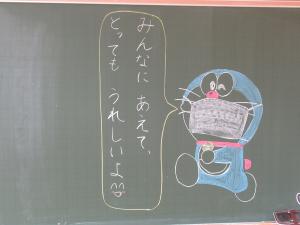 みんなに あえて、
とっても うれしいよ